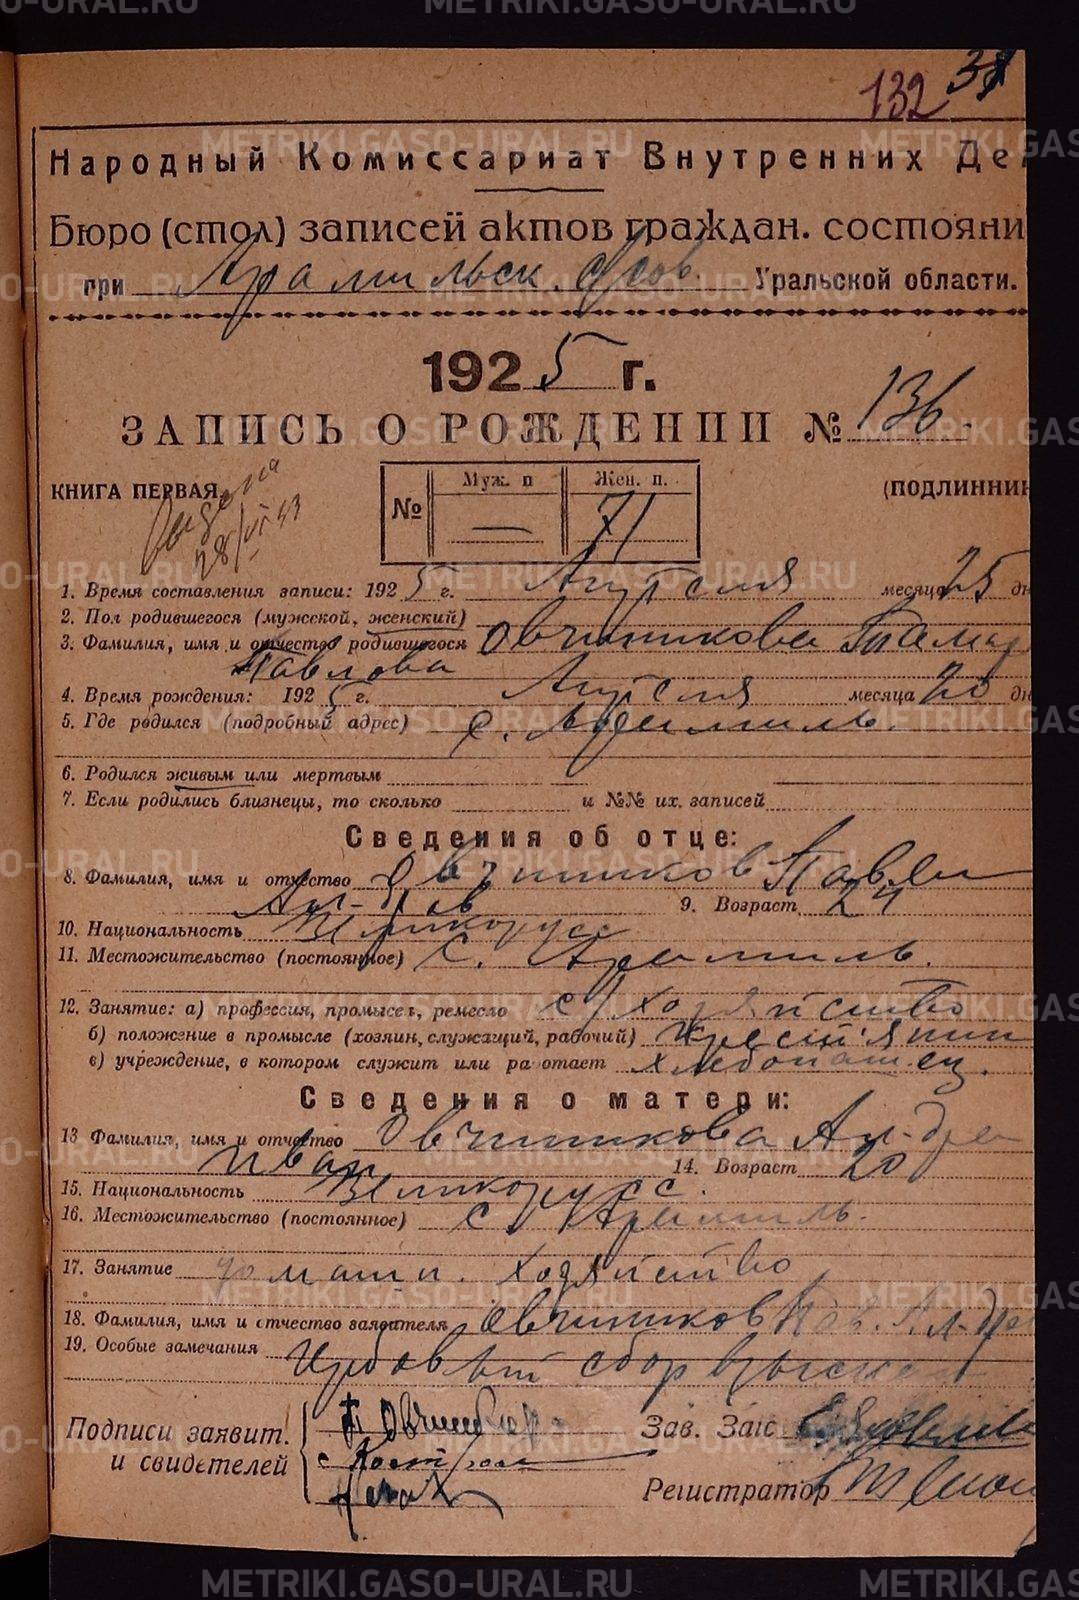 132
Народный Комиссариат Внутренних Де
Бюро (стол) записей актов граждан. состояни
при Арамильск. Уральской области.
1925 г.
ЗАПИСЬ О РОЖДЕНИИ № 136.
КНИГА ПЕРВАЯ. (ПОДЛИННИ
Выдана
28/VI 43
№ Муж. п — Жен. п. 71
1. Время составления записи: 1925 г. Апреля месяца 25 дн
2. Пол родившегося (мужской, женский)
3. Фамилия, имя и отчество родившегося Овчинникова Тамар
Павлова
4. Время рождения: 1925 г. Апреля месяца 20 дн
5. Где родился (подробный адрес) с. Арамиль.
6. Родился живым или мертвым
7. Если родились близнецы, то сколько и №№ их. записей
Сведения об отце:
8. Фамилия, имя и отчество Овчинников Павел
Ал-дров 9. Возраст 24
10. Национальность Великорусс
11. Местожительство (постоянное) с. Арамиль.
12. Занятие: а) профессия, промысел, ремесло с/хозяйство
б) положение в промысле (хозяин, служащий, рабочий) крестьянин
в) учреждение, в котором служит или работает хлебопашец.
Сведения о матери:
13 Фамилия, имя и отчество Овчинникова Ал-дра
Иван 14. Возраст 20
15. Национальность Великорусс.
16. Местожительство (постоянное) с. Арамиль.
17. Занятие домашн. хозяйство
18. Фамилия, имя и отчество заявителя Овчинников Пав. Ал-др
19. Особые замечания Гербовый сбор взыскан
Подписи заявит. П Овчинников Зав. Загс
и свидетелей
Регистратор
METRIKI.GASO-URAL.RU